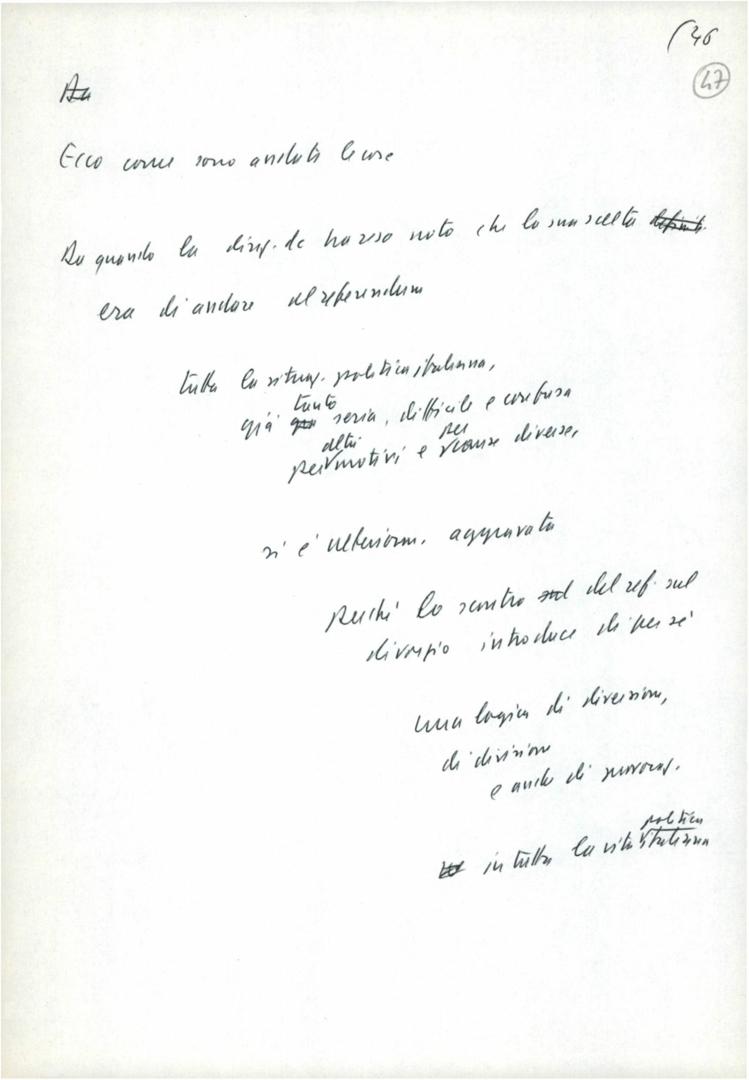 (46
47
Da
Ecco come sono andate le cose
Da quando la direz. dc ha reso noto che la sua scelta definit.
era di andare al referendum
tutta la situaz. politica italiana,
tanto
già seria, difficile e confusa
altri per
per motivi e cause diverse,
si è ulteriorm. aggravata
perché lo scontro sul del ref. sul
divorzio introduce di per sé
una logica di diversione,
di divisione
e anche di provocaz.
politica
in tutta la vita italiana